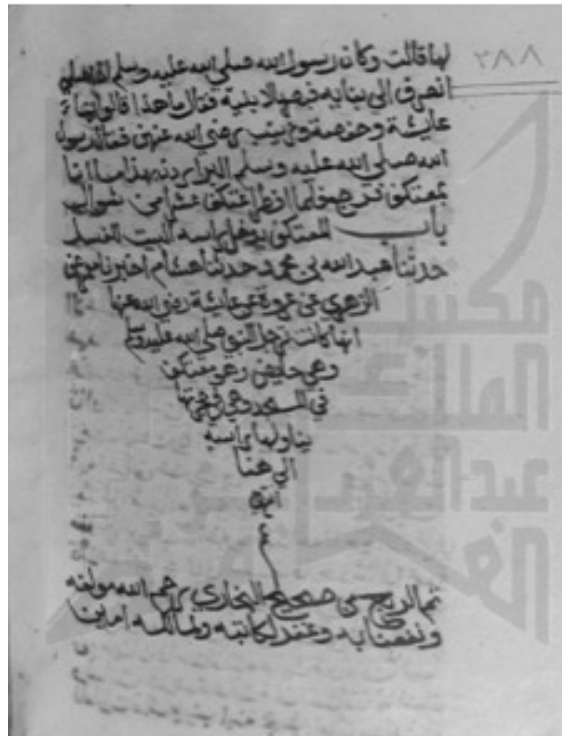 ٣٨٨
لها قالت وكان رسول الله صلي الله عليه وسلم اذا صلي
انصرف الي بنايه فبصر بالابنية فقال ما هذا قالوا بناء
عايشة وحفصة وزينب رضي الله عنهن فقال رسول
الله صلي الله عليه وسلم البر اردن بهذا ما انا
بمعتكف فرجع فلما افطر اعتكف عشرا من شوال
باب المعتكف يدخل راسه البيت للغسل
حدثنا عبد الله بن محمد حدثنا هشام اخبرنا معمر عن
الزهري عن عروة عن عايشة رضي الله عنها
انها كانت ترجل النبي صلي الله عليه وسلم
وهي حايض وهو معتكف
في المسجد وهي في حجرتها
يناولها راسه
الي هنا
انتهي
تم الربع من صحيح البخاري رحم الله مولفه
ونفعنا به وغفر لكاتبه ولمالكه امين
مكتبة
الملك
عبدالعزيز